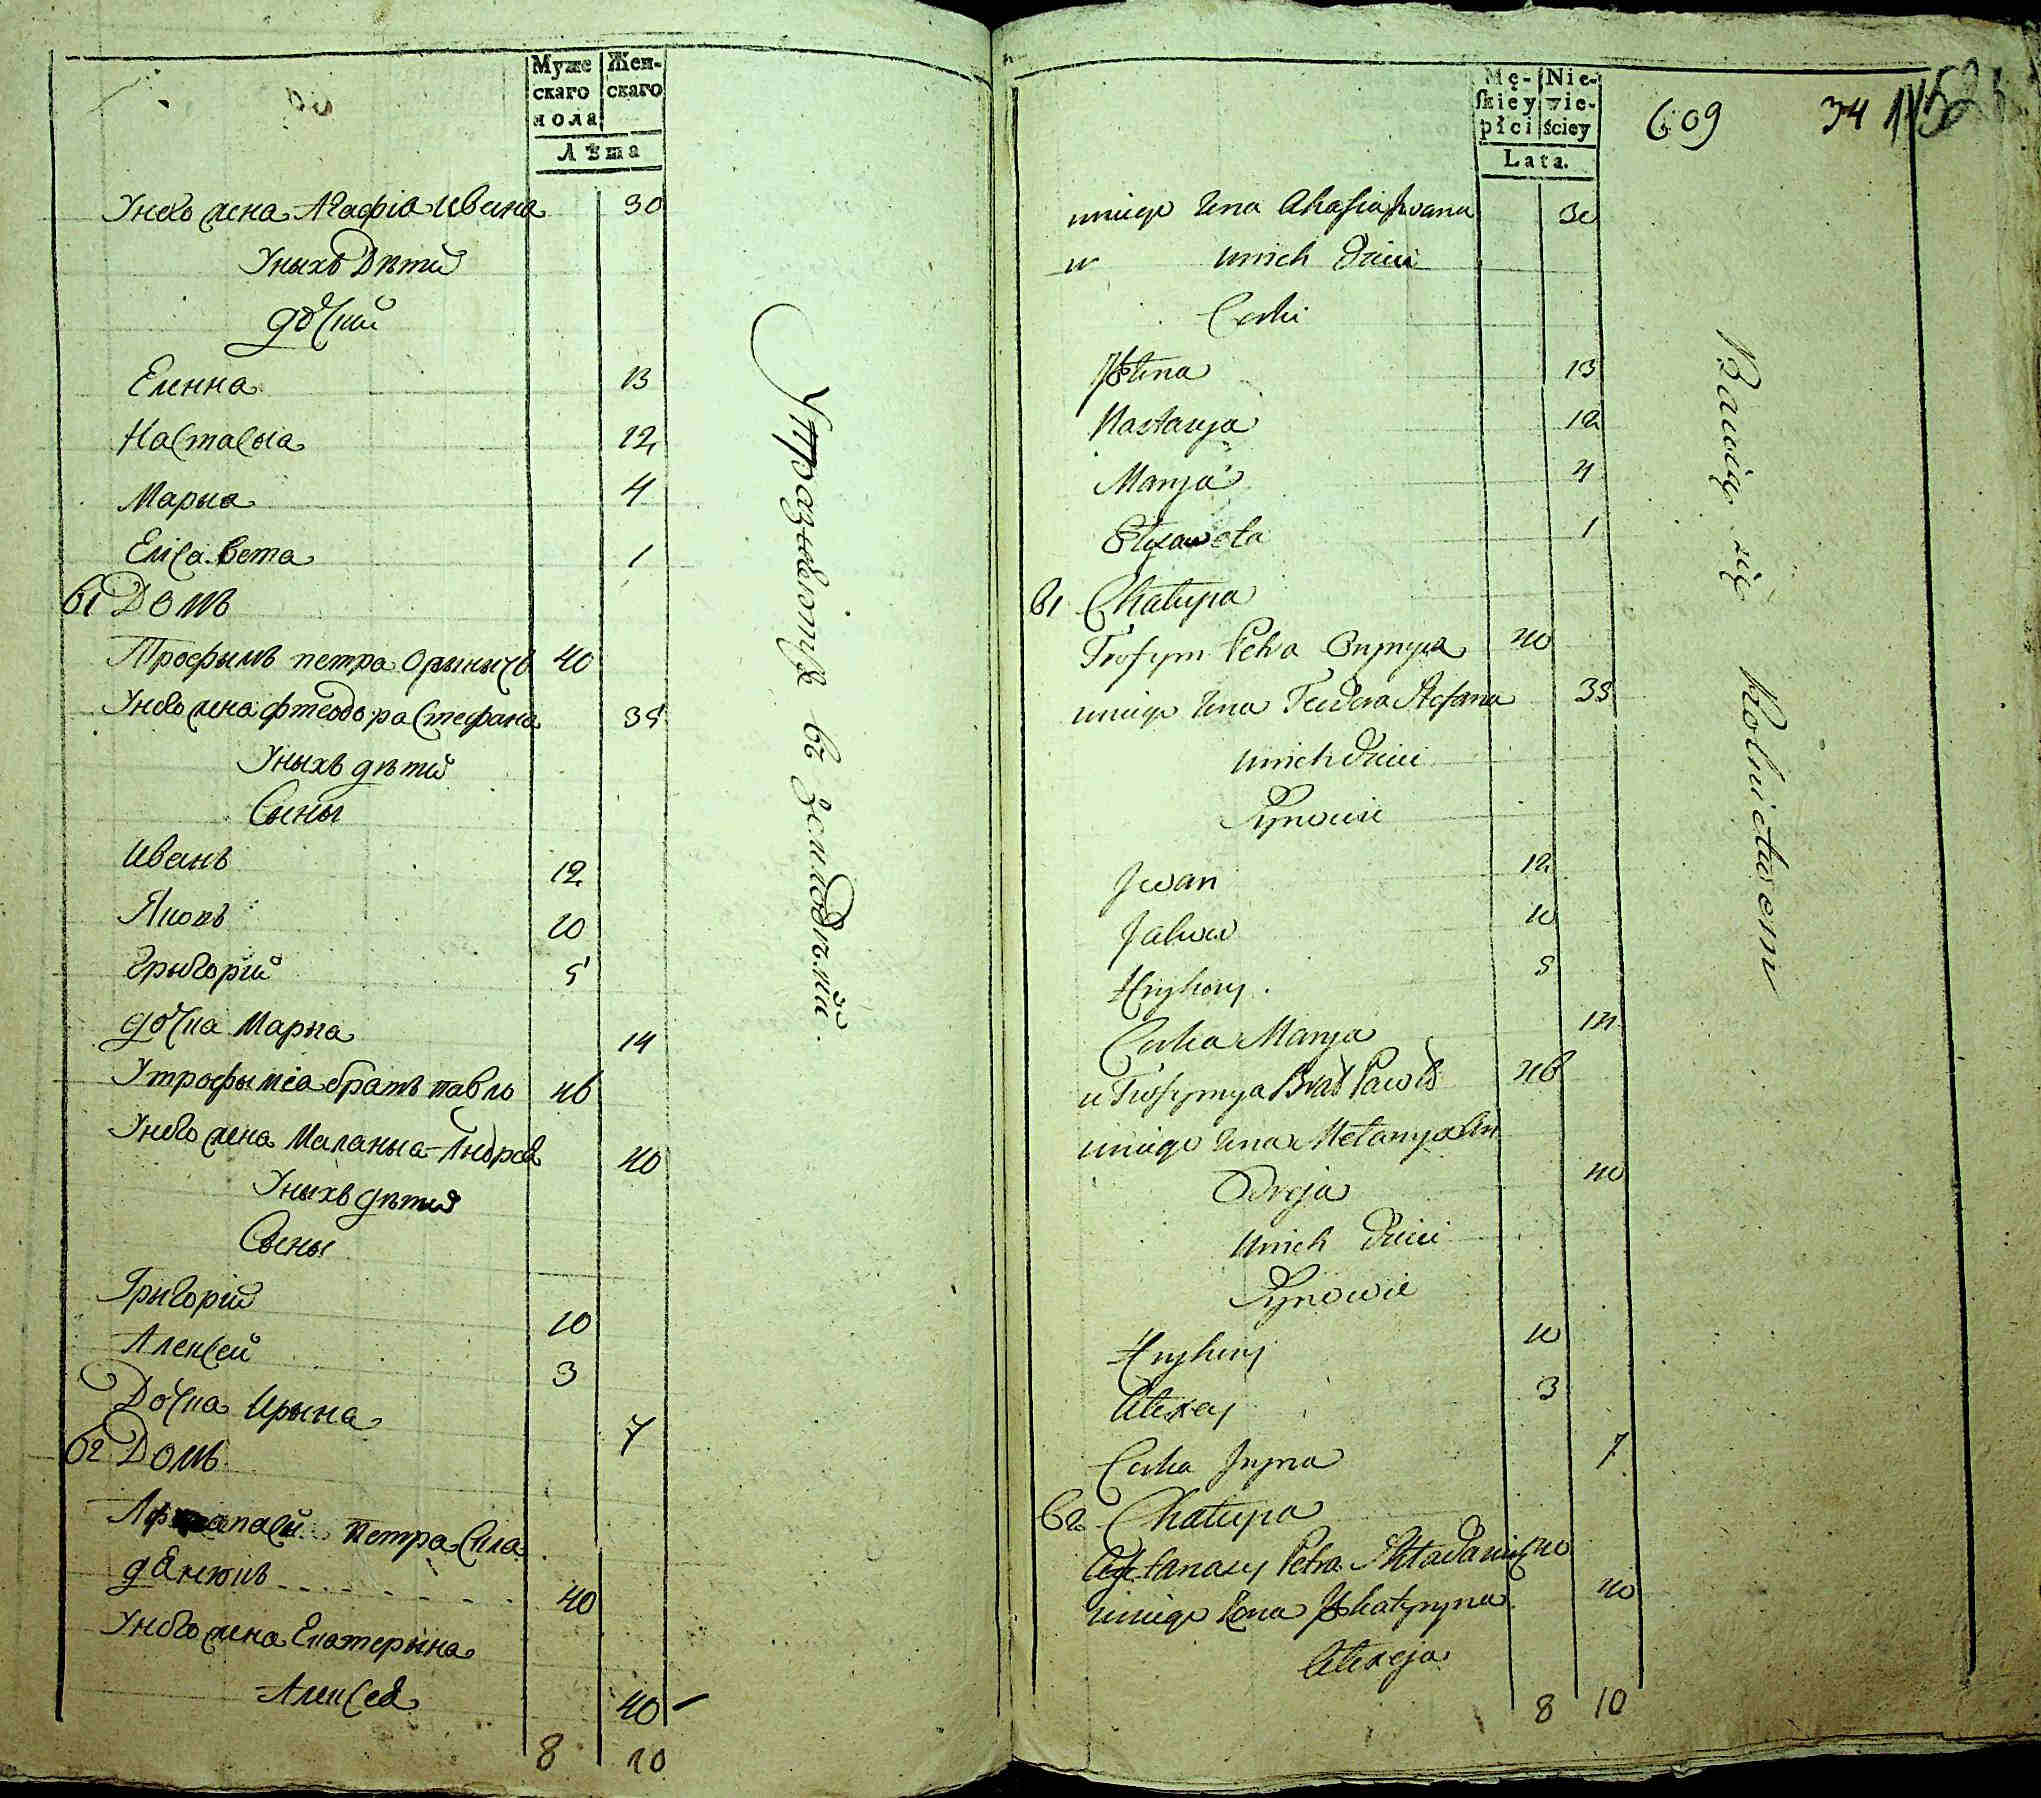 Муже
скаго
пола
Жен-
скаго
Лѣта
Унего жена Агафіа Ивана 30
Уныхъ Дѣтей
дочки
Еленна 13
Настасьіа 12
Марыа 4
Елісавета 1
61 Домъ
Трофымъ петра Орынычъ 40
Унего жена фтеодора Стефана 35
Уныхъ дѣтей
Сыны
Иванъ 12
Яковъ 10
Григорій 5
дочка Марыа 14
Утрофыміа братъ павло 46
Унего жена Маланыа Андрея 40
Уныхъ дѣтей
Сыны
Григорій 10
Алексей 3
Дочка Ирына 7
62 Домъ
петра Скла
данюкъ 40
Унего жена Екатерына
Алексея 40
8 10
Упражняютця въ Земледѣлій
Mę-
skiey
płci
Nie-
wie-
ściey
Lata.
609 34
uniego żona Ahafia Iwana 30
w unich dzieci
Corki
Helena 13
Nastasya 12
Marya 4
Elzaweta 1
61 Chałupa
Trofym Petra Orynycz 40
uniego żona Teodora Stefana 35
unich dzieci
Synowie
Iwan 12
Jakow 10
Hryhory 5
Corka Marya 14
u Trofymya Brat Pawło 46
uniego żona Melanya An
dreja 40
unich dzieci
Synowie
Hryhory 10
Alexey 3
Corka Iryna 7
62 Chałupa
Aftanasy Petra Skladaniuk 40
uniego żona Katyryna 40
Alexeja
8 10
Bawią się Rolnictwem